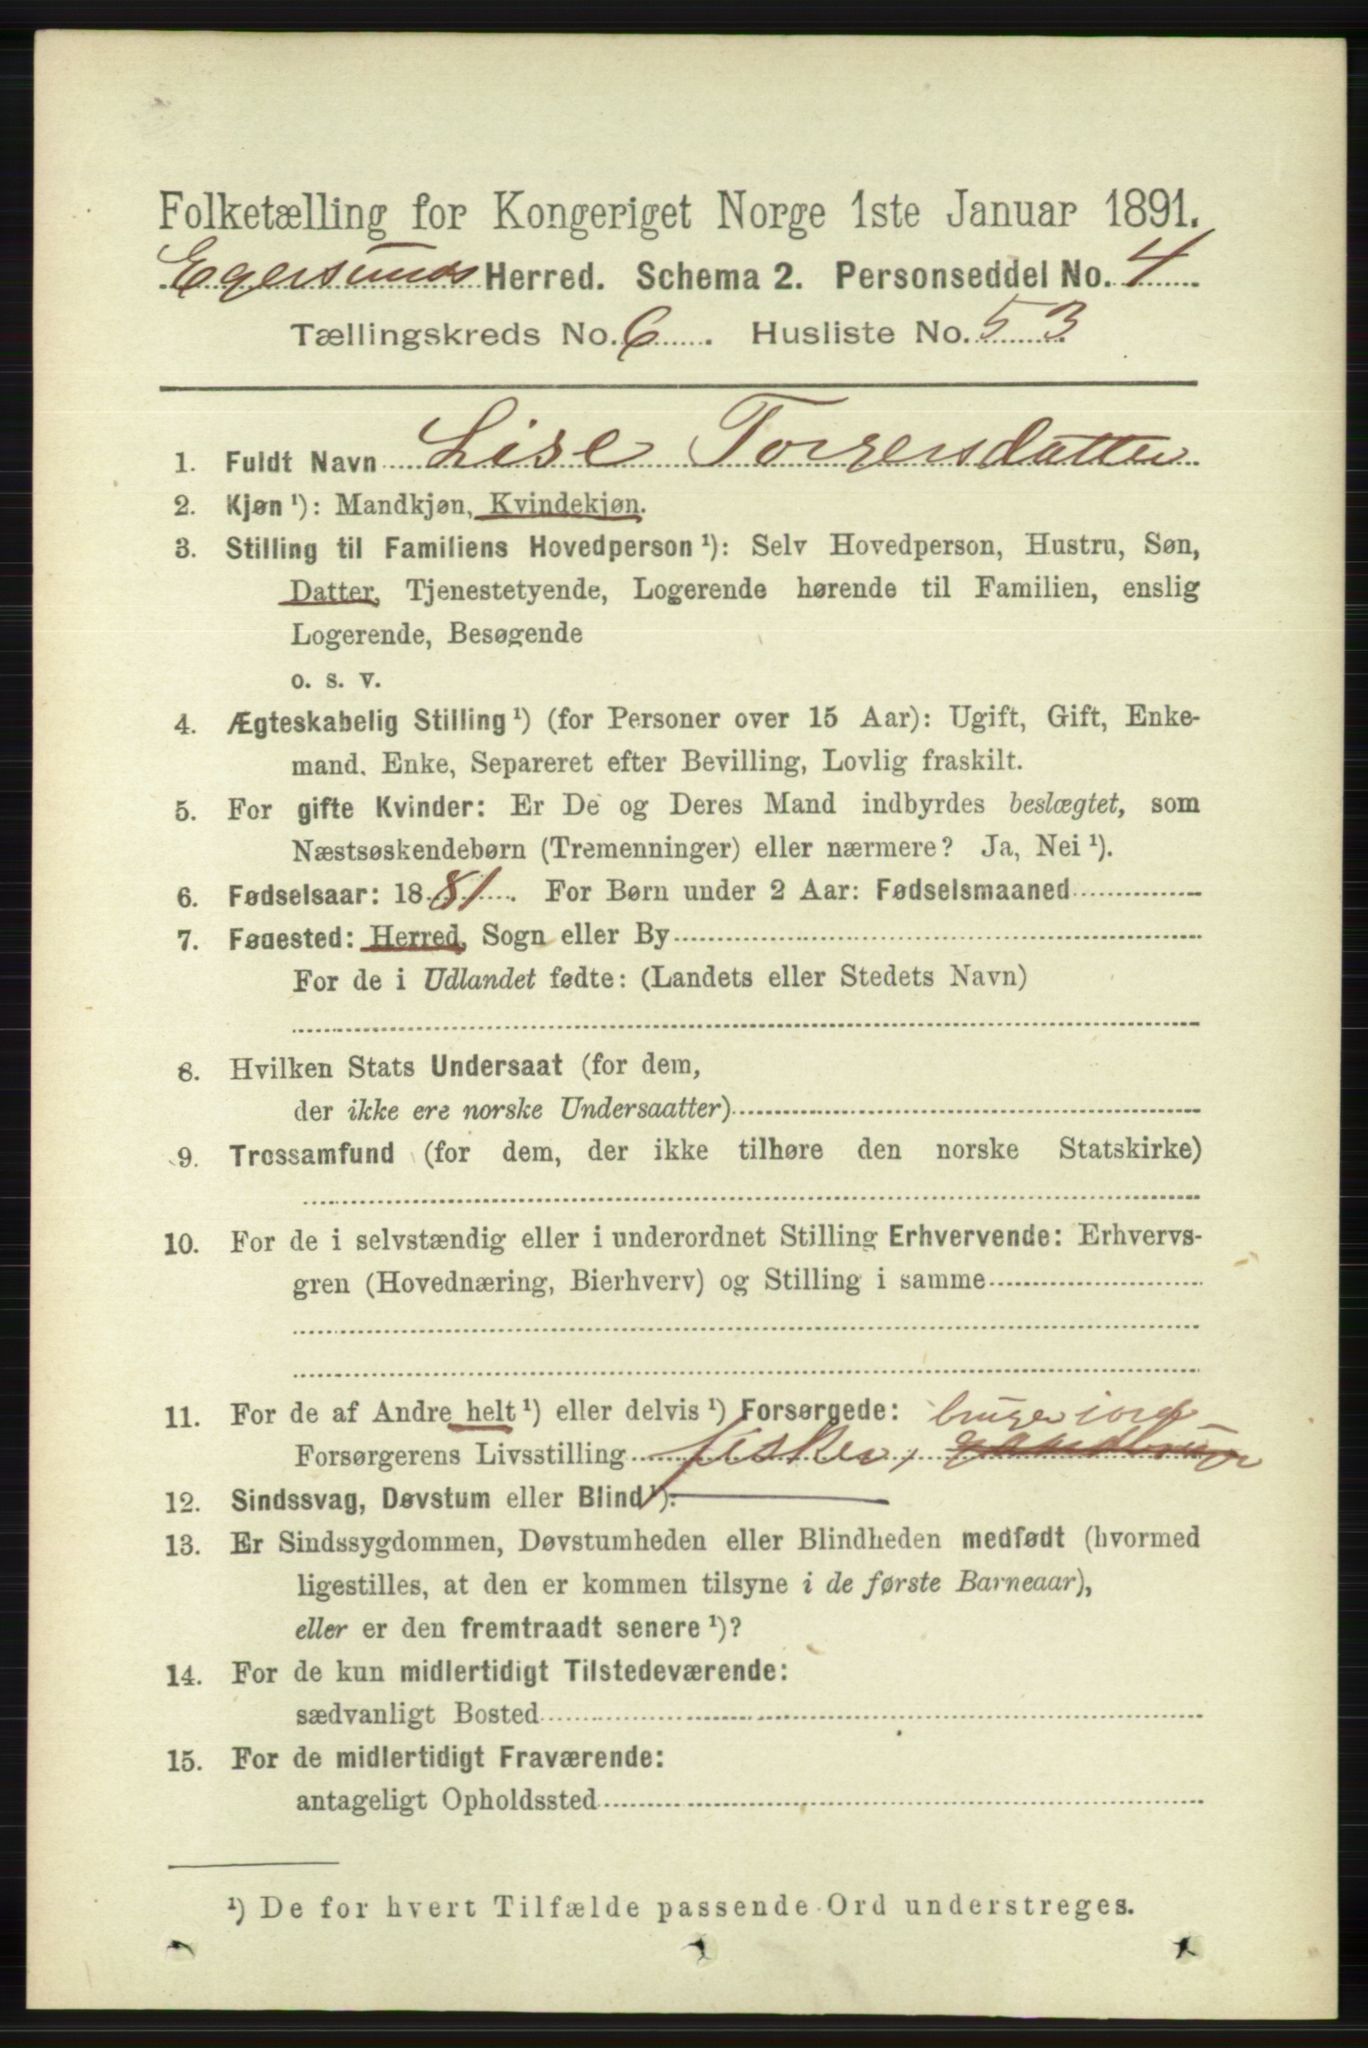 Folketælling for Kongeriget Norge 1ste Januar 1891.
Egersunds Herred. Schema 2. Personseddel No. 4
Tællingskreds No. 6. Husliste No. 53
1. Fuldt Navn Lise Torgersdatter
2. Kjøn ¹): Mandkjøn, Kvindekjøn.
3. Stilling til Familiens Hovedperson ¹): Selv Hovedperson, Hustru, Søn,
Datter, Tjenestetyende, Logerende hørende til Familien, enslig
Logerende, Besøgende
o. s. v.
4. Ægteskabelig Stilling ¹) (for Personer over 15 Aar): Ugift, Gift, Enke-
mand. Enke, Separeret efter Bevilling, Lovlig fraskilt.
5. For gifte Kvinder: Er De og Deres Mand indbyrdes beslægtet, som
Næstsøskendebørn (Tremenninger) eller nærmere? Ja, Nei ¹).
6. Fødselsaar: 1881. For Børn under 2 Aar: Fødselsmaaned
7. Fødested: Herred, Sogn eller By
For de i Udlandet fødte: (Landets eller Stedets Navn)
8. Hvilken Stats Undersaat (for dem,
der ikke ere norske Undersaatter)
9. Trossamfund (for dem, der ikke tilhøre den norske Statskirke)
10. For de i selvstændig eller i underordnet Stilling Erhvervende: Erhvervs-
gren (Hovednæring, Bierhverv) og Stilling i samme
11. For de af Andre helt ¹) eller delvis ¹) Forsørgede: bruger jord
Forsørgerens Livsstilling fisker, gaardbruger
12. Sindssvag, Døvstum eller Blind ¹):
13. Er Sindssygdommen, Døvstumheden eller Blindheden medfødt (hvormed
ligestilles, at den er kommen tilsyne i de første Barneaar),
eller er den fremtraadt senere ¹)?
14. For de kun midlertidigt Tilstedeværende:
sædvanligt Bosted
15. For de midlertidigt Fraværende:
antageligt Opholdssted
¹) De for hvert Tilfælde passende Ord understreges.